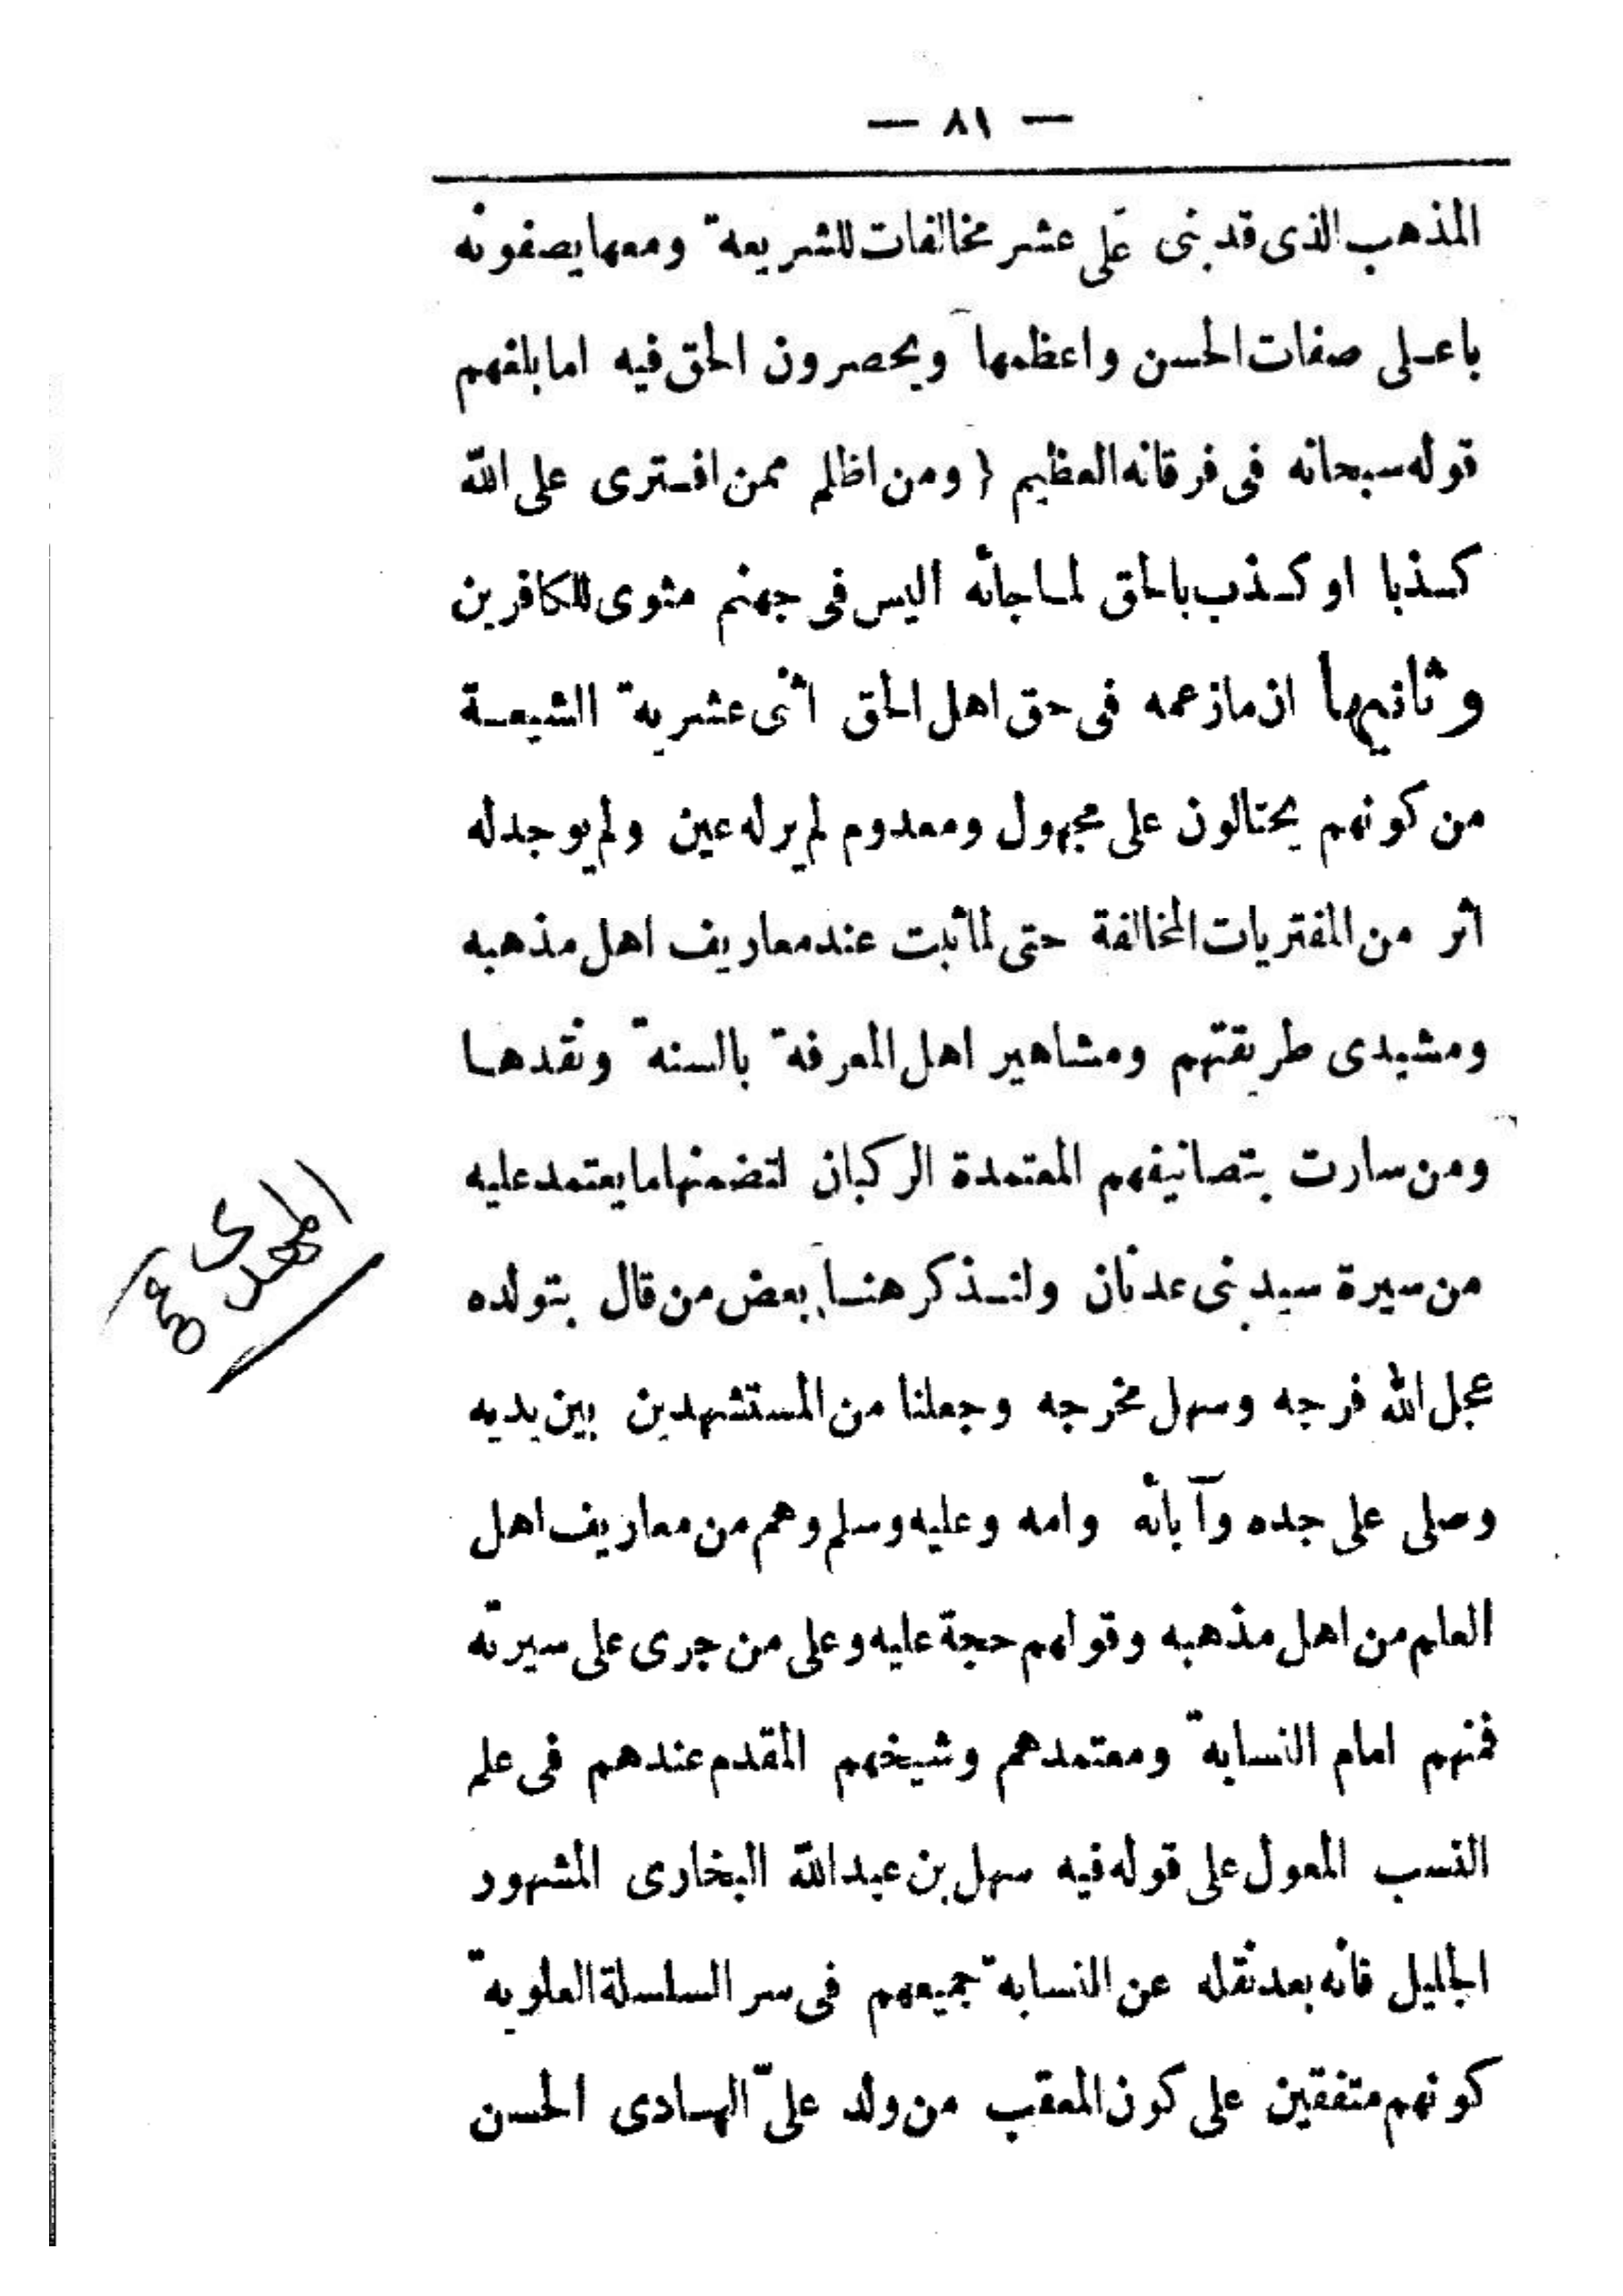 — ٨١ —
المذهب الذى قد بنى على عشر مخالفات للشريعة ومعها يصفونه
باعلى صفات الحسن واعظمها ويحصرون الحق فيه اما بلغهم
قوله سبحانه فى فرقانه العظيم ﴿ ومن اظلم ممن افترى على الله
كذبا او كذب بالحق لما جائه اليس فى جهنم مثوى للكافرين
وثانيها ان ما زعمه فى حق اهل الحق اثنى عشرية الشيعة
من كونهم يحتالون على مجهول ومعدوم لم ير له عين ولم يوجد له
اثر من المفتريات المخالفة حتى لما ثبت عند معاريف اهل مذهبه
ومشيدى طريقتهم ومشاهير اهل المعرفة بالسنة ونقدها
ومن سارت بتصانيفهم المعتمدة الركبان لتضمنها ما يعتمد عليه
من سيرة سيد بنى عدنان ولنذكر هنا بعض من قال بتولده
عجل الله فرجه وسهل مخرجه وجعلنا من المستشهدين بين يديه
وصلى على جده وآبائه وامه وعليه وسلم وهم من معاريف اهل
العلم من اهل مذهبه وقولهم حجة عليه وعلى من جرى على سيرته
فمنهم امام النسابة ومعتمدهم وشيخهم المقدم عندهم فى علم
النسب المعول على قوله فيه سهل بن عبدالله البخارى المشهور
الجليل فانه بعد نقله عن النسابة جميعهم فى سر السلسلة العلوية
كونهم متفقين على كون المعقب من ولد علىّ الهادى الحسن
المهدى